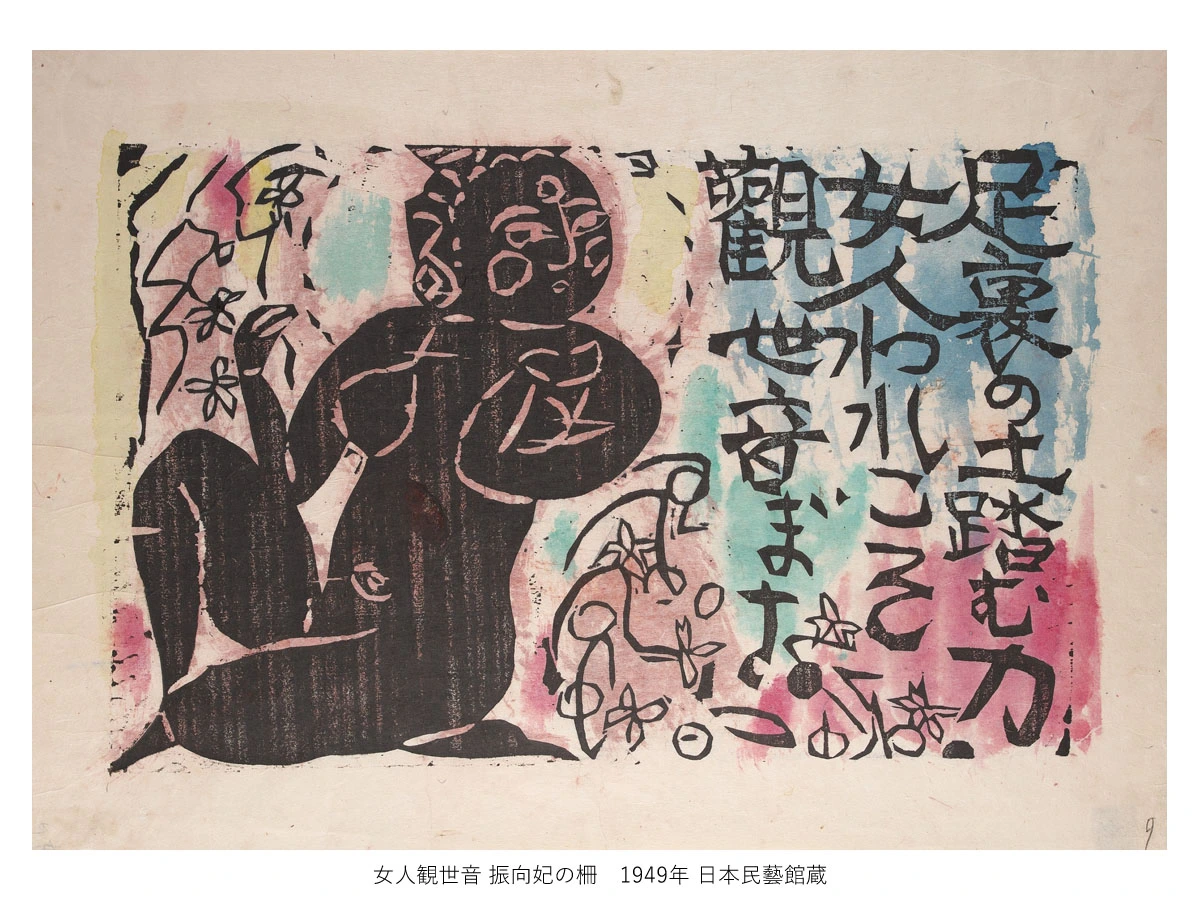 足裏の土踏む力
女人われこそ
觀世音ぼさつ
9
女人観世音 振向妃の柵　1949年 日本民藝館蔵